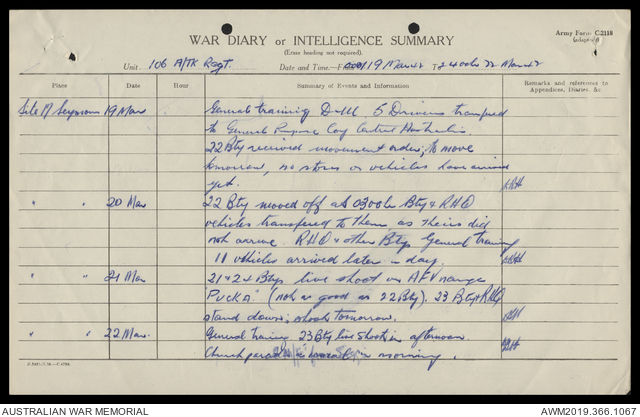 Army Form C.2118
(adapted)
WAR DIARY or INTELLIGENCE SUMMARY
(Erase heading not required).
Unit. 106 A/TK Regt. Date and Time—From 19 Mar 42 To 2400hr 22 Mar 42
Place Date Hour Summary of Events and Information Remarks and references to
Appendices, Diaries, &c
Site M Seymour 19 Mar General training D&M 5 Drivers transferred
to General Purpose Coy Central Australia
22 Bty received movement order; to move
tomorrow, no stores or vehicles have arrived
yet.
" " 20 Mar 22 Bty moved off at 0300hr Bty & RHQ
vehicles transferred to them as theirs did
not arrive. RHQ & other Btys General training
11 vehicles arrived later in day.
" " 21 Mar 21 & 24 Btys live shoot on AFV range
"PUCKA" (not as good as 22 Bty). 23 Bty & RHQ
stand down; shoot tomorrow.
" " 22 Mar. General training 23 Bty live shoot in afternoon
Church parade in morning.
AUSTRALIAN WAR MEMORIAL
AWM2019.366.1067